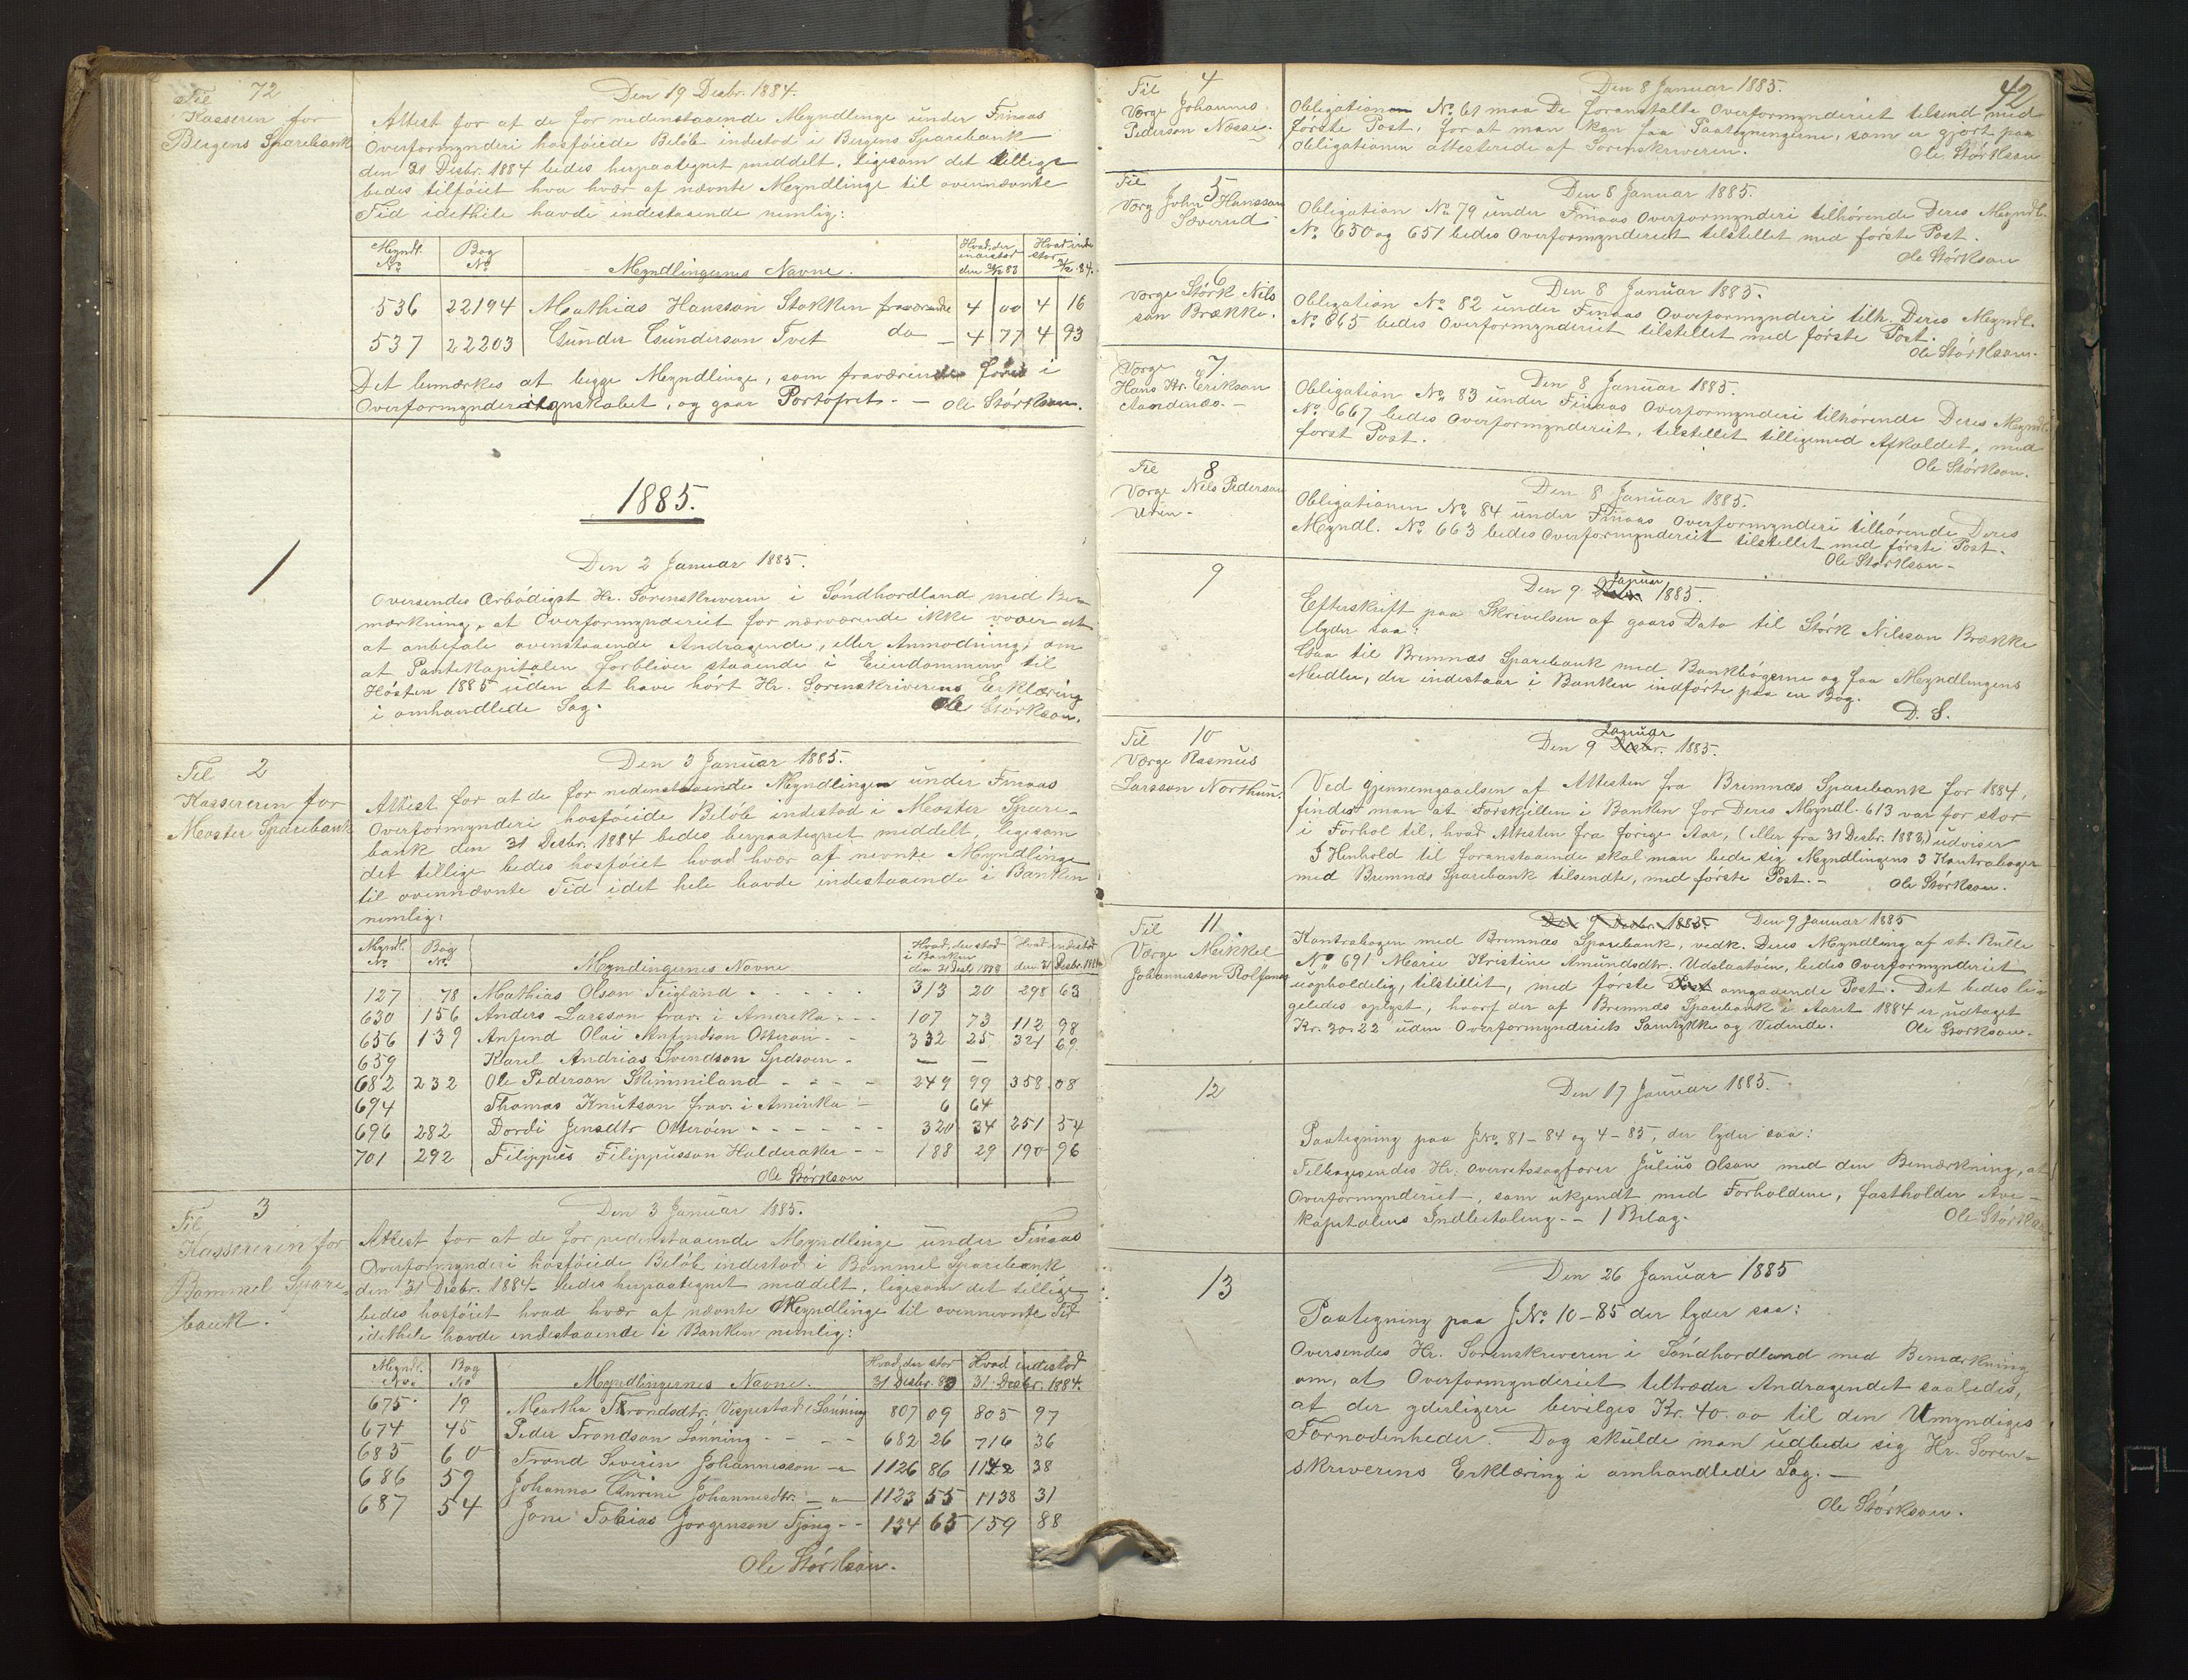 72
Til
Kasseren for
Bergens Sparebank
Den 19 Desbr. 1884.
Attest for at de for nedenstaaende Myndlinge under Finaas
Overformynderi hosføiede Beløb indestod i Bergens Sparebank
den 31 Desbr. 1884 bedes herpaategnet middelt, ligesom det tillige
bedes tilføiet hva hvær af nævnte Myndlinge til ovennævnte
Tid idethele havde indestaaende nemlig:
Myndl. No Bog No Myndlingernes Navne. Hvad der indestod den 31/12 83 Hvad inde stod 31/12 84.
536 22194 Mathias Hansson Stokken fraværende 4 00 4 16
537 22203 Gunder Gunderson Tvet do 4 77 4 93
Det bemærkes at begge Myndlinge, som fraværende føres i
Overformynderiregnskabet, og gaar Portofrit. - Ole Størkson.
1885.
1
Den 2 Januar 1885.
Oversendes Ærbødigst Hr. Sorenskriveren i Søndhordland med Be-
mærkning, at Overformynderiet for nærværende ikke vover at
at anbefale ovenstaaende Andragende, eller Anmodning, om
at Pantekapitalen forbliver staaende i Eiendommen til
Høsten 1885 uden at have hørt Hr. Sorenskriverens Erklæring
i omhandlede Sag. Ole Størkson.
Til 2
Kassereren for
Moster Sparebank
Den 3 Januar 1885.
Attest for at de for nedenstaaende Myndlinger under Finaas
Overformynderi hosføiede Beløb indestod i Moster Spare-
bank den 31 Desbr. 1884 bedes herpaategnet middelt, ligesom
det tillige bedes hosføiet hvad hvær af nevnte Myndlinge
til ovennævnte Tid idet hele havde indestaaende i Banken
nemlig:
Myndl. No Bog No. Myndingernes Navne Hvad, der stod i Banken den 31 Desbr 1883 Hvad indestod den 31 Desbr. 1884
127 78 Mathias Olson Teigland 313 20 298 63
630 156 Anders Larsson frav. i Amerika 107 73 112 98
656 139 Anfind Olai Anfindson Otterøen 332 25 321 69
659 Karil Andrias Svendson Sydsven - -
682 232 Ole Pederson Skimmiland 249 99 358 08
694 Thomas Knutson frav. i Amirika 6 64
696 282 Dordi Jensdtr Otterøen 320 34 251 54
701 292 Filippus Filippusson Halderaker 188 29 190 96
Ole Størkson
3
Til
Kassereren for
Bømmel Spare-
bank.
Den 3 Januar 1885.
Attest for at de for nedenstaaende Myndlinge under Finaas
Overformynderi hosføiede Beløb indestod i Bømmel Sparebank
den 31 Desbr. 1884 bedes herpaategnet middelt, ligesom det tillige
bedes hosføiet hvad hvær af nævnte Myndlinge til ovennevnte Tid
idethele havde indestaaende i Banken nemlig:
Myndl. No. Bog No Myndlingernes Navne. Hvad, der stod 31 Desbr. 83 Hvad indestod 31. Desbr. 1884.
675 19 Martha Trondsdtr. Vespestad Sønning 807 09 805 97
674 45 Peder Trondson Sønning 682 26 716 36
685 60 Trond Severin Johannesson 1126 86 1142 38
686 59 Johanna Cunrine Johannesdtr. 1123 55 1138 31
687 54 Jone Tobias Jorgenson Tjong 134 65 159 88
Ole Størkson.
42
Til 4
Værge Johannes
Pederson Næsse.
Den 8 Januar 1885.
Obligationen No 61 maa De foranstalte Overformynderiet tilsend med
første Post, for at man kan faa Paategningerne, som er gjort paa
obligationen attesterede af Sorenskriveren. Ole Størkson
Til 5
Værg John Hansson
Sæverud
Den 8 Januar 1885.
Obligation No 79 under Finaas Overformynderi tilhørende Deres Myndl.
No 650 og 651 bedes Overformynderiet tilstillet med første Post.
Ole Størkson
6
Værge Størk Nils
son Brække.
Den 8 Januar 1885.
Obligation No. 82 under Finaas Overformynderi tilh. Deres Myndl.
No 665 bedes Overformynderiet tilstillet med første Post.
Ole Størkson.
Værge 7.
Hans Hr. Erikson
Aandenæs.
Den 8 Januar 1885.
Obligation No 83 under Finaas Overformynderi tilhørende Deres Myndl.
No 667 bedes Overformynderiet, tilstillet tilligemed Afkaldet, med
først Post.
Ole Størkson.
Til 8
Værge Nils Pederson
Uren
Den 8 Januar 1885.
Obligationen No 84 under Finaas Overformynderi tilhørende Deres
Myndl. No 663 bedes Overformynderiet tilstillet med første Post.
Ole Størkson
9
Den 9 Januar 1885.
Efterskrift paa Skrivelsen af gaars Dato til Størk Nilsson Brække
lyder saa:
Gaa til Bremnæs Sparebank med Bankbøgerne og faa Myndlingens
Medler, der indestaar i Banken indførte paa en Bog.
D. S.
Til 10
Værge Rasmus
Larsson Northun.
Den 9 Januar 1885.
Ved gjennemgaaelsen af Attesten fra Bremnæs Sparebank for 1884,
findes man at Forskjellen i Banken for Deres Myndl. 613 var for stor
i Forhol til, hvad Attesten fra forige Aar, (eller fra 31 Desbr. 1883) udviser
I Henhold til foranstaaende skal man bede sig Myndlingens 3 Kontrabøger
med Bremnæs Sparebank tilsendte, med første Post. - Ole Størkson.
Til 11
Værge Meikkel
Johannesson Rolfsnes
Den 9 Desbr. 1885. Den 9 Januar 1885
Kontrabogen med Bremnæs Sparebank, vedk. Deres Myndling af st. Rulle
No 691 Marie Kristine Amundsdtr. Udslaatøen, bedes Overformynderiet
uopholdelig, tilstillit, med første Post omgaaende Post. Det bedes li-
geledes oplyst, hvorf der af Bremnæs Sparebank i Aaret 1884 er udtaget
Kr. 30.22 uden Overformynderiets Samtykke og Vidende. Ole Størkson.
12
Den 17 Januar 1885.
Paategning paa JNo. 81-84 og 4-85, der lyder saa:
Tilbagesendes Hr. Overretssagfører Julius Olson med den Bemærkning, at
Overformynderiet, som ukjendt med Forholdene, fastholder Ave-
kapitalens Indbetaling. - 1 Bilag. Ole Størkson
13
Den 26 Januar 1885
Paategning paa JNo. 10-85 der lyder saa:
Oversendes Hr. Sorenskriveren i Søndhordland med Bemærkning
om, at Overformynderiet tiltræder Andragendet saaledes,
at der yderligere bevilges Kr. 40.00 til den Umyndiges
Fornødenheder. Dog skulde man udbede sig Hr. Soren-
skriverens Erklæring i omhandlede Sag. -
Ole Størkson.